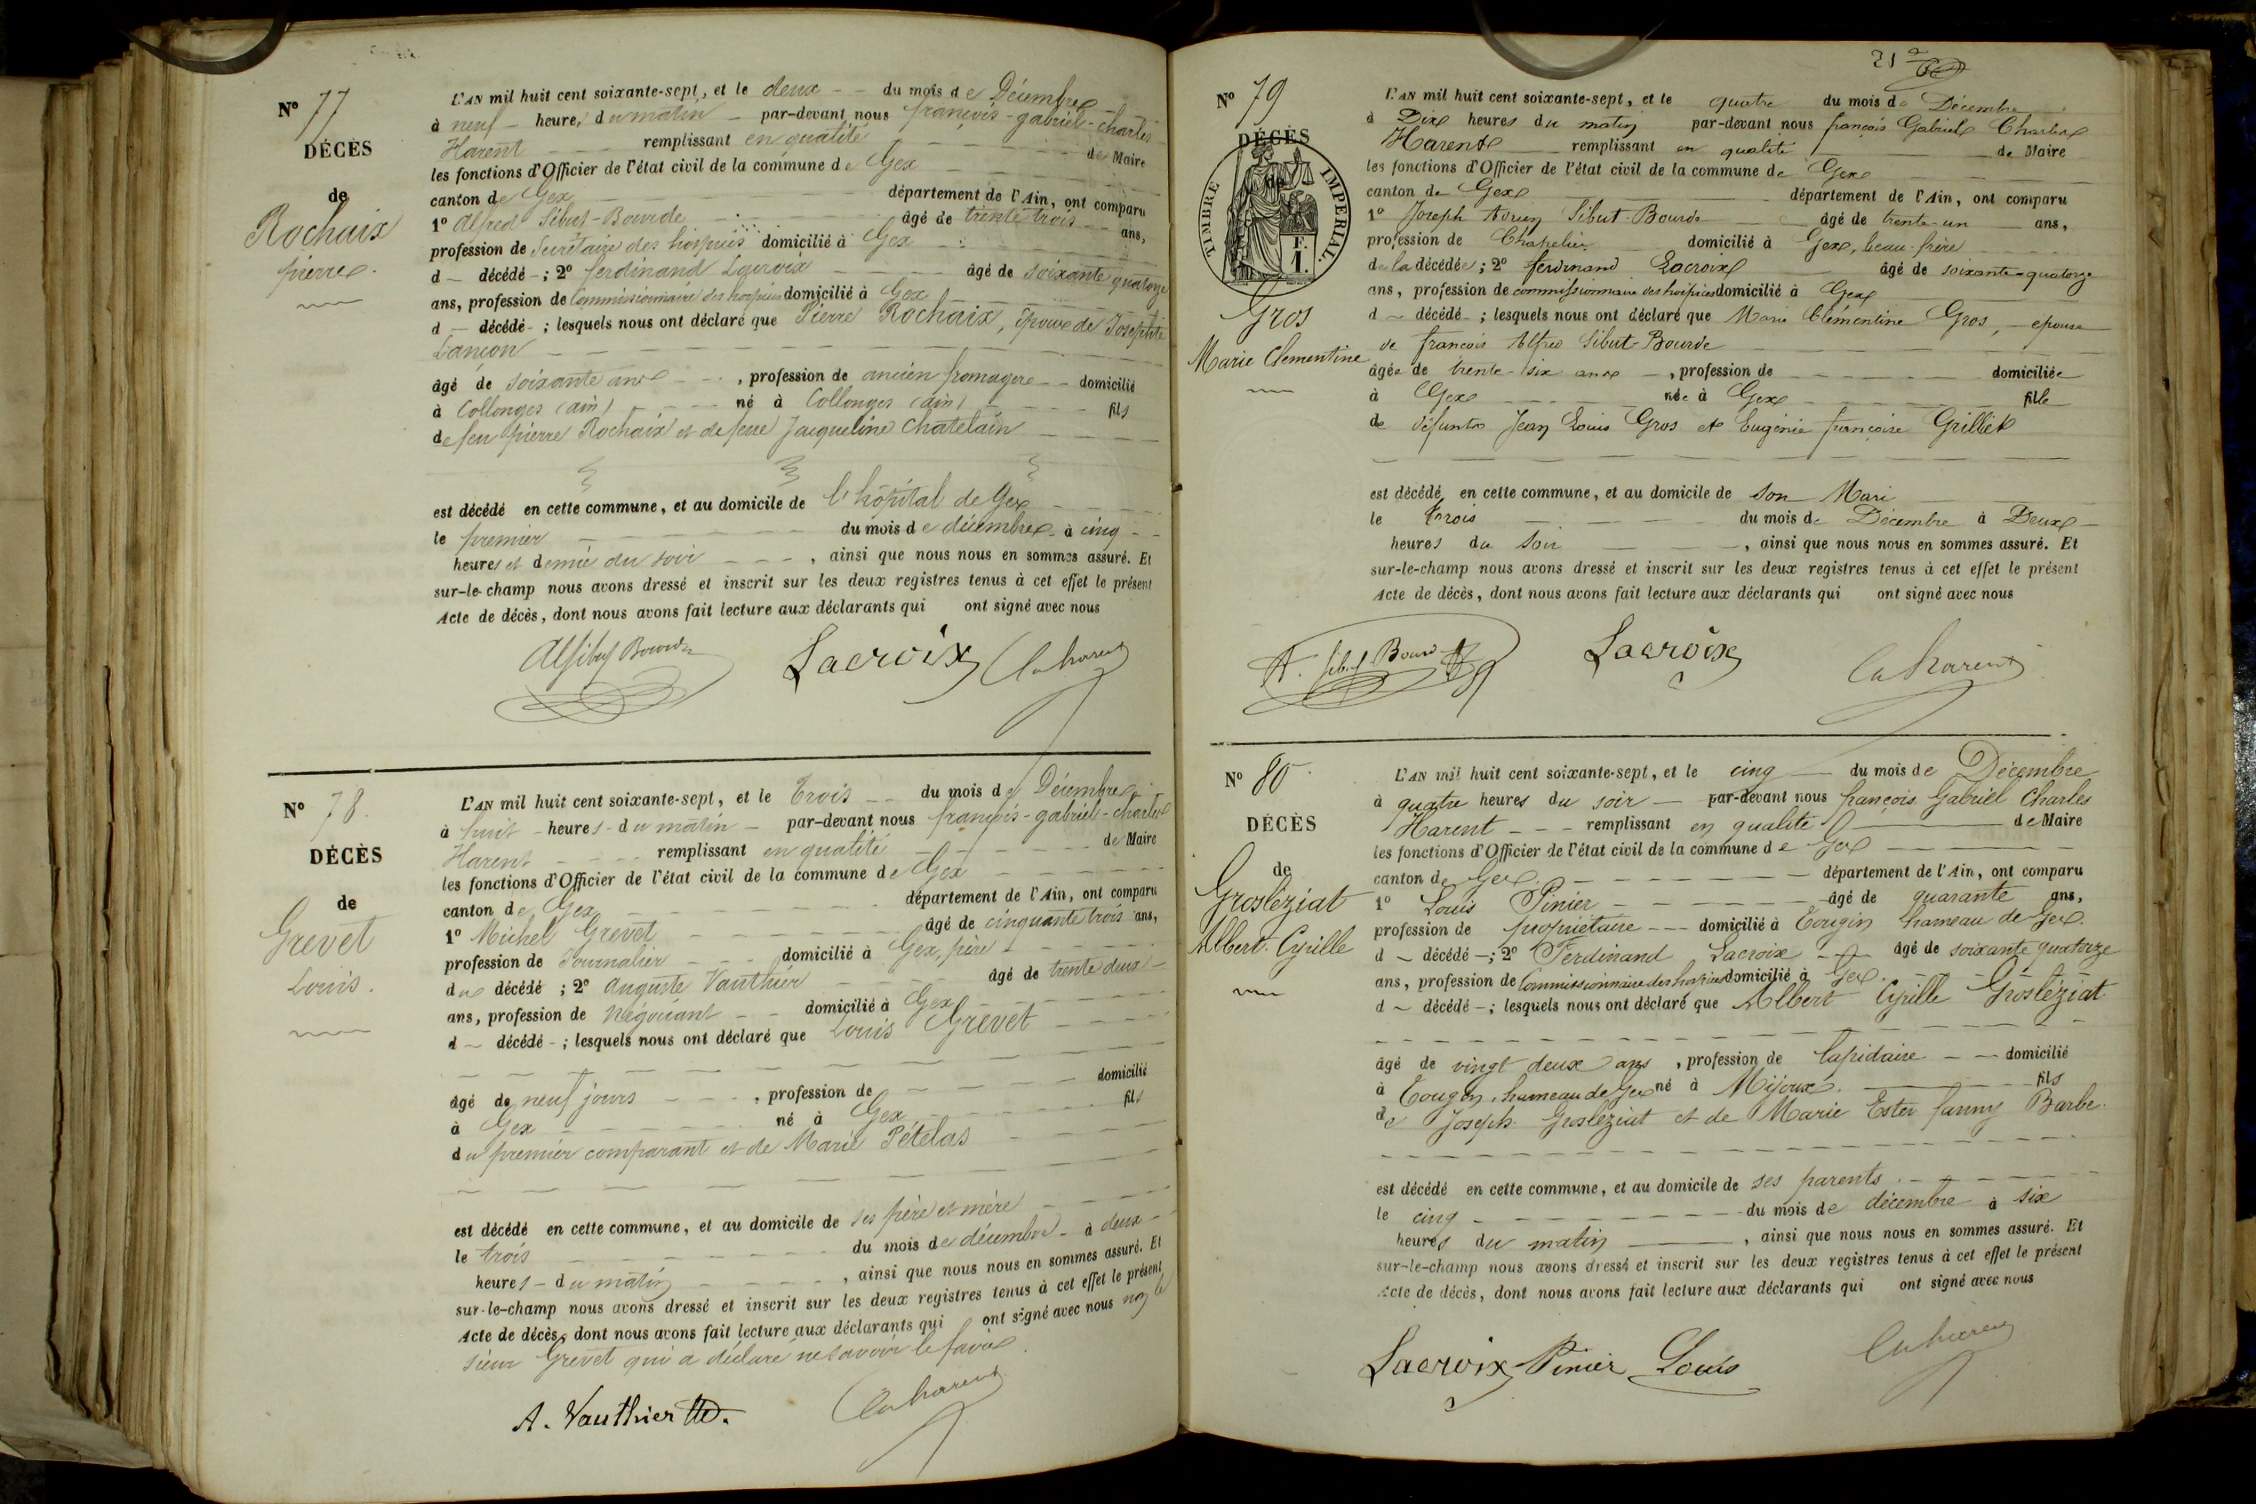 Nº 77
DÉCÈS
de
Rochaix
pierre
L'AN mil huit cent soixante-sept, et le deux du mois de Décembre
à neuf heures du matin par-devant nous françois-gabriel-charles
Harent remplissant en qualité de Maire
les fonctions d'Officier de l'état civil de la commune de Gex
canton de Gex département de l'Ain, ont comparu
1º Alfred Sibut-Bourde âgé de trente trois ans,
profession de Secrétaire des hospices domicilié à Gex
d décédé ; 2º ferdinand Lacroix âgé de soixante quatorze
ans, profession de Commissionnaire des hospices domicilié à Gex
d décédé ; lesquels nous ont déclaré que Pierre Rochaix, époux de Josephte
Lançon
âgé de soixante ans , profession de ancien fromager domicilié
à Collonges (ain) né à Collonges (ain) fils
de feu pierre Rochaix et de feue Jacqueline Chatelain
est décédé en cette commune, et au domicile de l'hôpital de Gex
le premier du mois de décembre à cinq
heures et demie du soir , ainsi que nous nous en sommes assuré. Et
sur-le-champ nous avons dressé et inscrit sur les deux registres tenus à cet effet le présent
Acte de décès, dont nous avons fait lecture aux déclarants qui ont signé avec nous
Al Sibut Bourde Lacroix Ch harent
Nº 78
DÉCÈS
de
Grevet
Louis.
L'AN mil huit cent soixante-sept, et le trois du mois de Décembre
à huit heures du matin par-devant nous françois-gabriel-charles
Harent remplissant en qualité de Maire
les fonctions d'Officier de l'état civil de la commune de Gex
canton de Gex département de l'Ain, ont comparu
1º Michel Grevet âgé de cinquante trois ans,
profession de Journalier domicilié à Gex, père
du décédé ; 2º Auguste Vauthier âgé de trente deux
ans, profession de Négociant domicilié à Gex
d décédé ; lesquels nous ont déclaré que Louis Grevet
âgé de neuf jours , profession de domicilié
à Gex né à Gex fils
du premier comparant et de Marie Pételas
est décédé en cette commune, et au domicile de ses père et mère
le trois du mois de décembre à deux
heures du matin , ainsi que nous nous en sommes assuré. Et
sur-le-champ nous avons dressé et inscrit sur les deux registres tenus à cet effet le présent
Acte de décès, dont nous avons fait lecture aux déclarants qui ont signé avec nous non le
sieur Grevet qui a déclaré ne savoir le faire.
A. Vauthier Ch harent
212
Nº 79
DÉCÈS
de
TIMBRE IMPÉRIAL.
Gros
Marie Clementine
L'AN mil huit cent soixante-sept, et le quatre du mois de Décembre
à Dix heures du matin par-devant nous françois Gabriel Charles
Harent remplissant en qualité de Maire
les fonctions d'Officier de l'état civil de la commune de Gex
canton de Gex département de l'Ain, ont comparu
1º Joseph Adrien Sibut-Bourde âgé de trente-un ans,
profession de Chapelier domicilié à Gex, beau-frère
de la décédée ; 2º ferdinand Lacroix âgé de soixante-quatorze
ans, profession de commissionnaire des hospices domicilié à Gex
d décédé ; lesquels nous ont déclaré que Marie Clémentine Gros, épouse
de françois Alfred Sibut-Bourde
âgée de trente-six ans , profession de domiciliée
à Gex née à Gex fille
de défunts Jean Louis Gros et Eugénie françoise Grillet
est décédé en cette commune, et au domicile de son Mari
le trois du mois de Décembre à Deux
heures du soir , ainsi que nous nous en sommes assuré. Et
sur-le-champ nous avons dressé et inscrit sur les deux registres tenus à cet effet le présent
Acte de décès, dont nous avons fait lecture aux déclarants qui ont signé avec nous
A. Sibut Bourde Lacroix Ch harent
Nº 80
DÉCÈS
de
Grosléziat
Albert Cyrille
L'AN mil huit cent soixante-sept, et le cinq du mois de Décembre
à quatre heures du soir par-devant nous françois Gabriel Charles
Harent remplissant en qualité de Maire
les fonctions d'Officier de l'état civil de la commune de Gex
canton de Gex département de l'Ain, ont comparu
1º Louis Pinier âgé de quarante ans,
profession de propriétaire domicilié à Tougin hameau de Gex.
d décédé ; 2º Ferdinand Lacroix âgé de soixante quatorze
ans, profession de Commissionnaire des hospices domicilié à Gex.
d décédé ; lesquels nous ont déclaré que Albert Cyrille Grosléziat
âgé de vingt deux ans , profession de lapidaire domicilié
à Tougin, hameau de Gex né à Mijoux. fils
de Joseph Grosléziat et de Marie Ester fanny Barbe.
est décédé en cette commune, et au domicile de ses parents.
le cinq du mois de décembre à six
heures du matin , ainsi que nous nous en sommes assuré. Et
sur-le-champ nous avons dressé et inscrit sur les deux registres tenus à cet effet le présent
Acte de décès, dont nous avons fait lecture aux déclarants qui ont signé avec nous
Lacroix Pinier Louis Ch harent